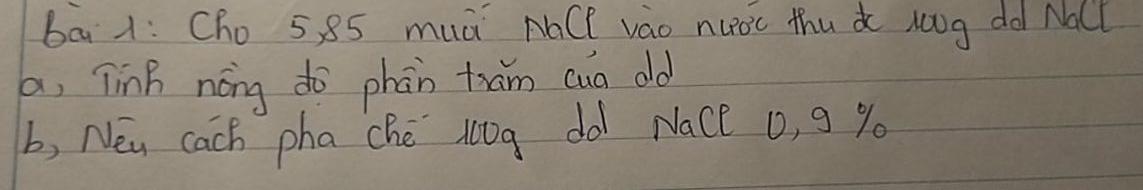 bài 1: Cho 5,85 muối NaCl vào nước thu đc 100g dd NaCl
a, Tính nồng độ phần trăm của dd
b, Nêu cách pha chế 100g dd NaCl 0,9 %